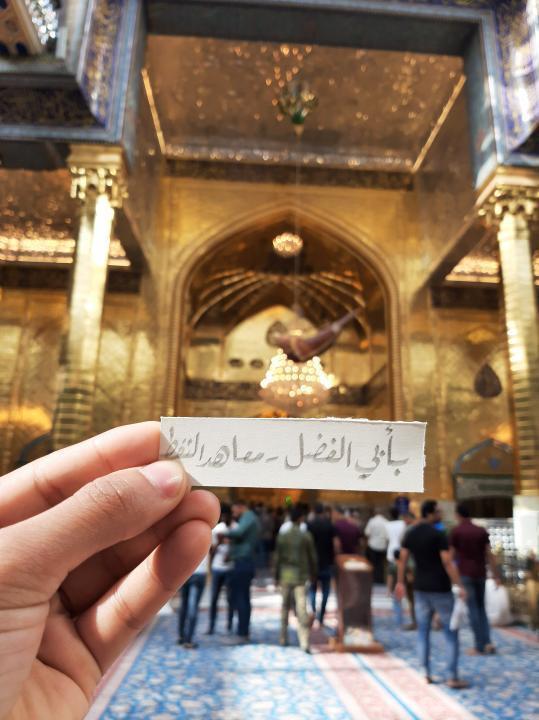 بأبي الفضل - معاهد النفط